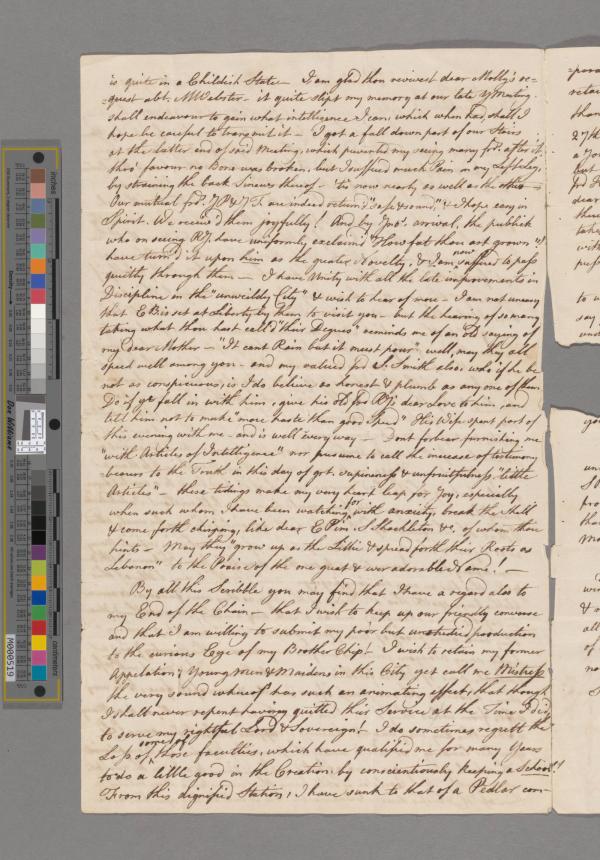 is quite in a Childish State — I am glad thou revivest dear Molly's re=
=quest abt. M Webster – it quite slipt my memory at our late Y Meeting.
shall endeavour to gain what intelligence I can, which when had, shall I
hope be careful to transmit it – I got a fall down part of our Stairs
at the latter end of said Meeting, which prevented my seeing many frds. after it.
thro' favour no Bone was broken, but I suffered much Pain in my Left Leg,
by straining the back Sinews thereof – 'tis now nearly as well as the other —
Our mutual frds. are indeed return'd "safe & sound," & I hope easy in
Spirit. We receiv'd them joyfully! And by arrival, the publick
who on seeing RJ. have uniformly exclaimed "How fat thou art grown"!
have turn'd it upon him as the greater Novelty, & I am now suffered to pass
quietly through them — I have Unity with all the late improvements in
Discipline in the "unwieldy City" & wish to hear of more – I am not uneasy
that E B is set at Liberty by them to visit you – but the hearing of so many
taking what thou hast call'd "their Degrees" reminds me of an old saying of
my dear Mother – "It cant Rain but it must pour". well, may they all
speed well among you – and my valued frd. J. Smith also, who if he be
not as conspicuous, is I do believe as honest & plumb as any one of them.
Do if ye fall in with him, give his old frd RJ's dear Love to him, and
tell him not to make "more haste than good speed" His Wife spent part of
this evening with me – and is well every way – Dont forbear furnishing me
"with Articles of Intelligence" nor presume to call the increase of testimony
bearers to the Truth in this day of grt. supineness & unfruitfulness, "little
Articles" – these tidings make my very heart leap for Joy, especially
when such whom I have been watching for with anxiety, break the Shell
& come forth chirping, like dear E Pim, S. Shackleton &c. of whom thou
hints – May they "grow up as the Lillie & spread forth their Roots as
Lebanon" to the Praise of the one great & ever adorable Name! —
By all this Scribble you may find that I have a regard also to
my End of the Chain – that I wish to keep up our friendly converse
and that I am willing to submit my poor but unstudied production
to the curious Eye of my Brother Chip! I wish to retain my former
Appelation; Young Men & Maidens in this City yet call me Mistress
the very sound whereof has such an animating effect, that though
I shall never repent having quitted this Service at the Time I did
to serve my rightful Lord & Sovereign! I do sometimes regrett the
Loss of some of those faculties, which have qualified me for many Years
to do a little good in the Creation, by conscientiously keeping a School!!
From this dignified Station, I have sunk to that of a Pedlar com=